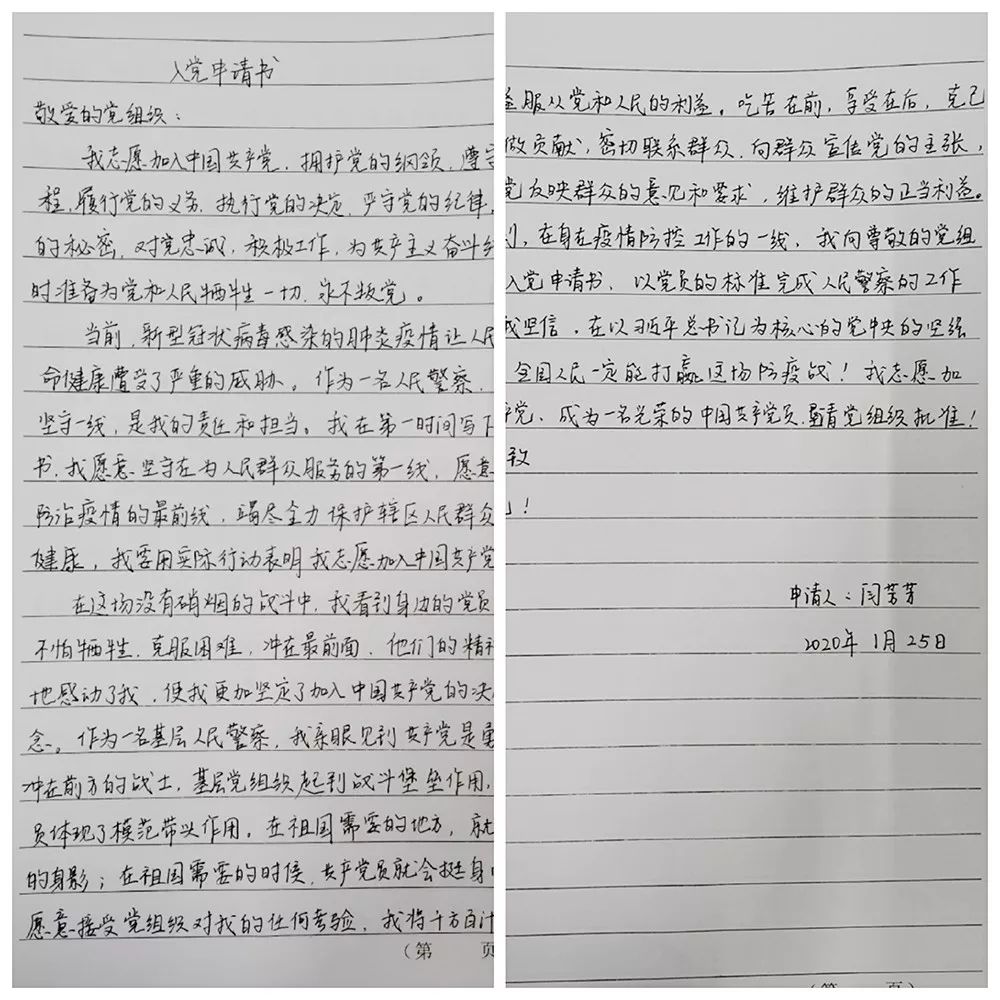 入党申请书
敬爱的党组织：
我志愿加入中国共产党，拥护党的纲领，遵守
程，履行党的义务，执行党的决定，严守党的纪律，
的秘密，对党忠诚，积极工作，为共产主义奋斗终
时准备为党和人民牺牲一切，永不叛党。
当前，新型冠状病毒感染的肺炎疫情让人民
命健康遭受了严重的威胁。作为一名人民警察，
坚守一线，是我的责任和担当。我在第一时间写下
书，我愿意坚守在为人民群众服务的第一线，愿意
防治疫情的最前线，竭尽全力保护辖区人民群众
健康，我要用实际行动表明我志愿加入中国共产党
在这场没有硝烟的战斗中，我看到身边的党员
不怕牺牲，克服困难，冲在最前面，他们的精神
地感动了我，使我更加坚定了加入中国共产党的决
念。作为一名基层人民警察，我亲眼见到共产党是勇
冲在前方的战士，基层党组织起到战斗堡垒作用，
员体现了模范带头作用，在祖国需要的地方，就
的身影；在祖国需要的时候，共产党员就会挺身
愿意接受党组织对我的任何考验，我将千方百计
（第 页
服从党和人民的利益。吃苦在前，享受在后，克己
做贡献，密切联系群众，向群众宣传党的主张，
党反映群众的意见和要求，维护群众的正当利益。
刻，在身在疫情防控工作的一线，我向尊敬的党组
入党申请书，以党员的标准完成人民警察的工作
我坚信，在以习近平总书记为核心的党中央的坚强
全国人民一定能打赢这场防疫战！我志愿加
产党，成为一名光荣的中国共产党员，请党组织批准！
致
！
申请人：闫芳芳
2020年1月25日
（第 页）